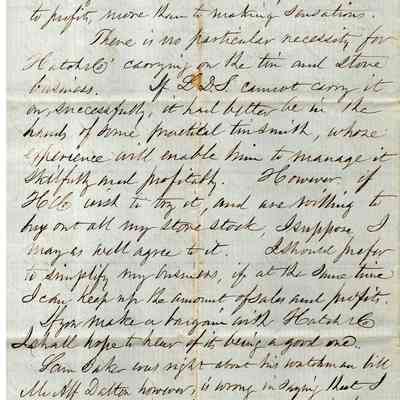 to profit, more than to making sensations.
There is no particular necessity for
Hatch &Co' carrying on the tin and stove
business. If D.D.S. cannot carry it
on, successfully, it had better be in the
hands of some practical tinsmith, whose
experience will enable him to manage it
skilfully and profitably. However, if
H&Co wish to try it, and are willing to
buy out all my stove stock, I suppose I
may as well agree to it. I should prefer
to simplify my business, if at the same time
I can keep up the amount of sales and profits.
If you make a bargain with Hatch &Co
I shall hope to hear of it being a good one.
Sam Baker was right about his watchman bill
Mr Alf Dalton however, is wrong in saying that I